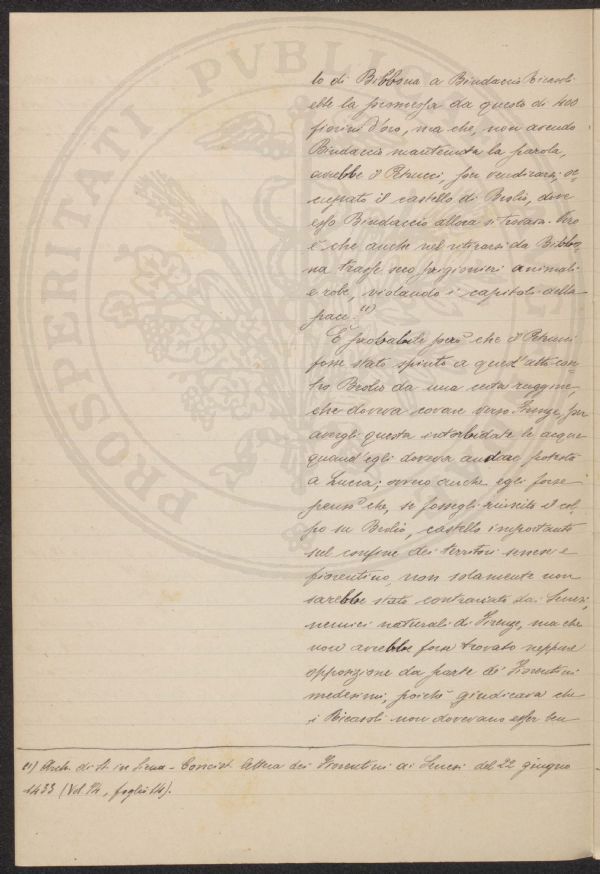 lo di Bibbona a Bindaccio Ricasoli
ebbe la promessa da questo di 400
fiorini d'oro, ma che, non avendo
Bindaccio mantenuta la parola,
avrebbe il Petrucci, per vendicarsi, oc-
cupato il castello di Brolio, dove
esso Bindaccio allora si trovava. Vero
è che anche nel ritirarsi da Bibbo-
na trasse seco prigionieri animali
e robe, violando i capitoli della
pace. (1)
È probabile però che il Petrucci
fosse stato spinto a quest'atto con-
tro Brolio da una certa ruggine,
che doveva covare verso Firenze, per
avergli questa intorbidate le acque
quand'egli doveva andare potestà
a Lucca; ovvero anche egli forse
pensò che, se fossegli riuscito il col-
po su Brolio, castello importante
sul confine dei territori senese e
fiorentino, non solamente non
sarebbe stato contrariato dai Senesi,
nemici naturali di Firenze, ma che
non avrebbe forse trovato neppure
opposizione da parte de' Fiorentini
medesimi, poichè giudicava che
i Ricasoli non dovevano esser ben
PROSPERITATI PVBLICAE
(1) Arch. di St. in Siena - Concist. Lettera dei Fiorentini ai Senesi del 22 giugno
1433 (Vol. 14, foglio 14).